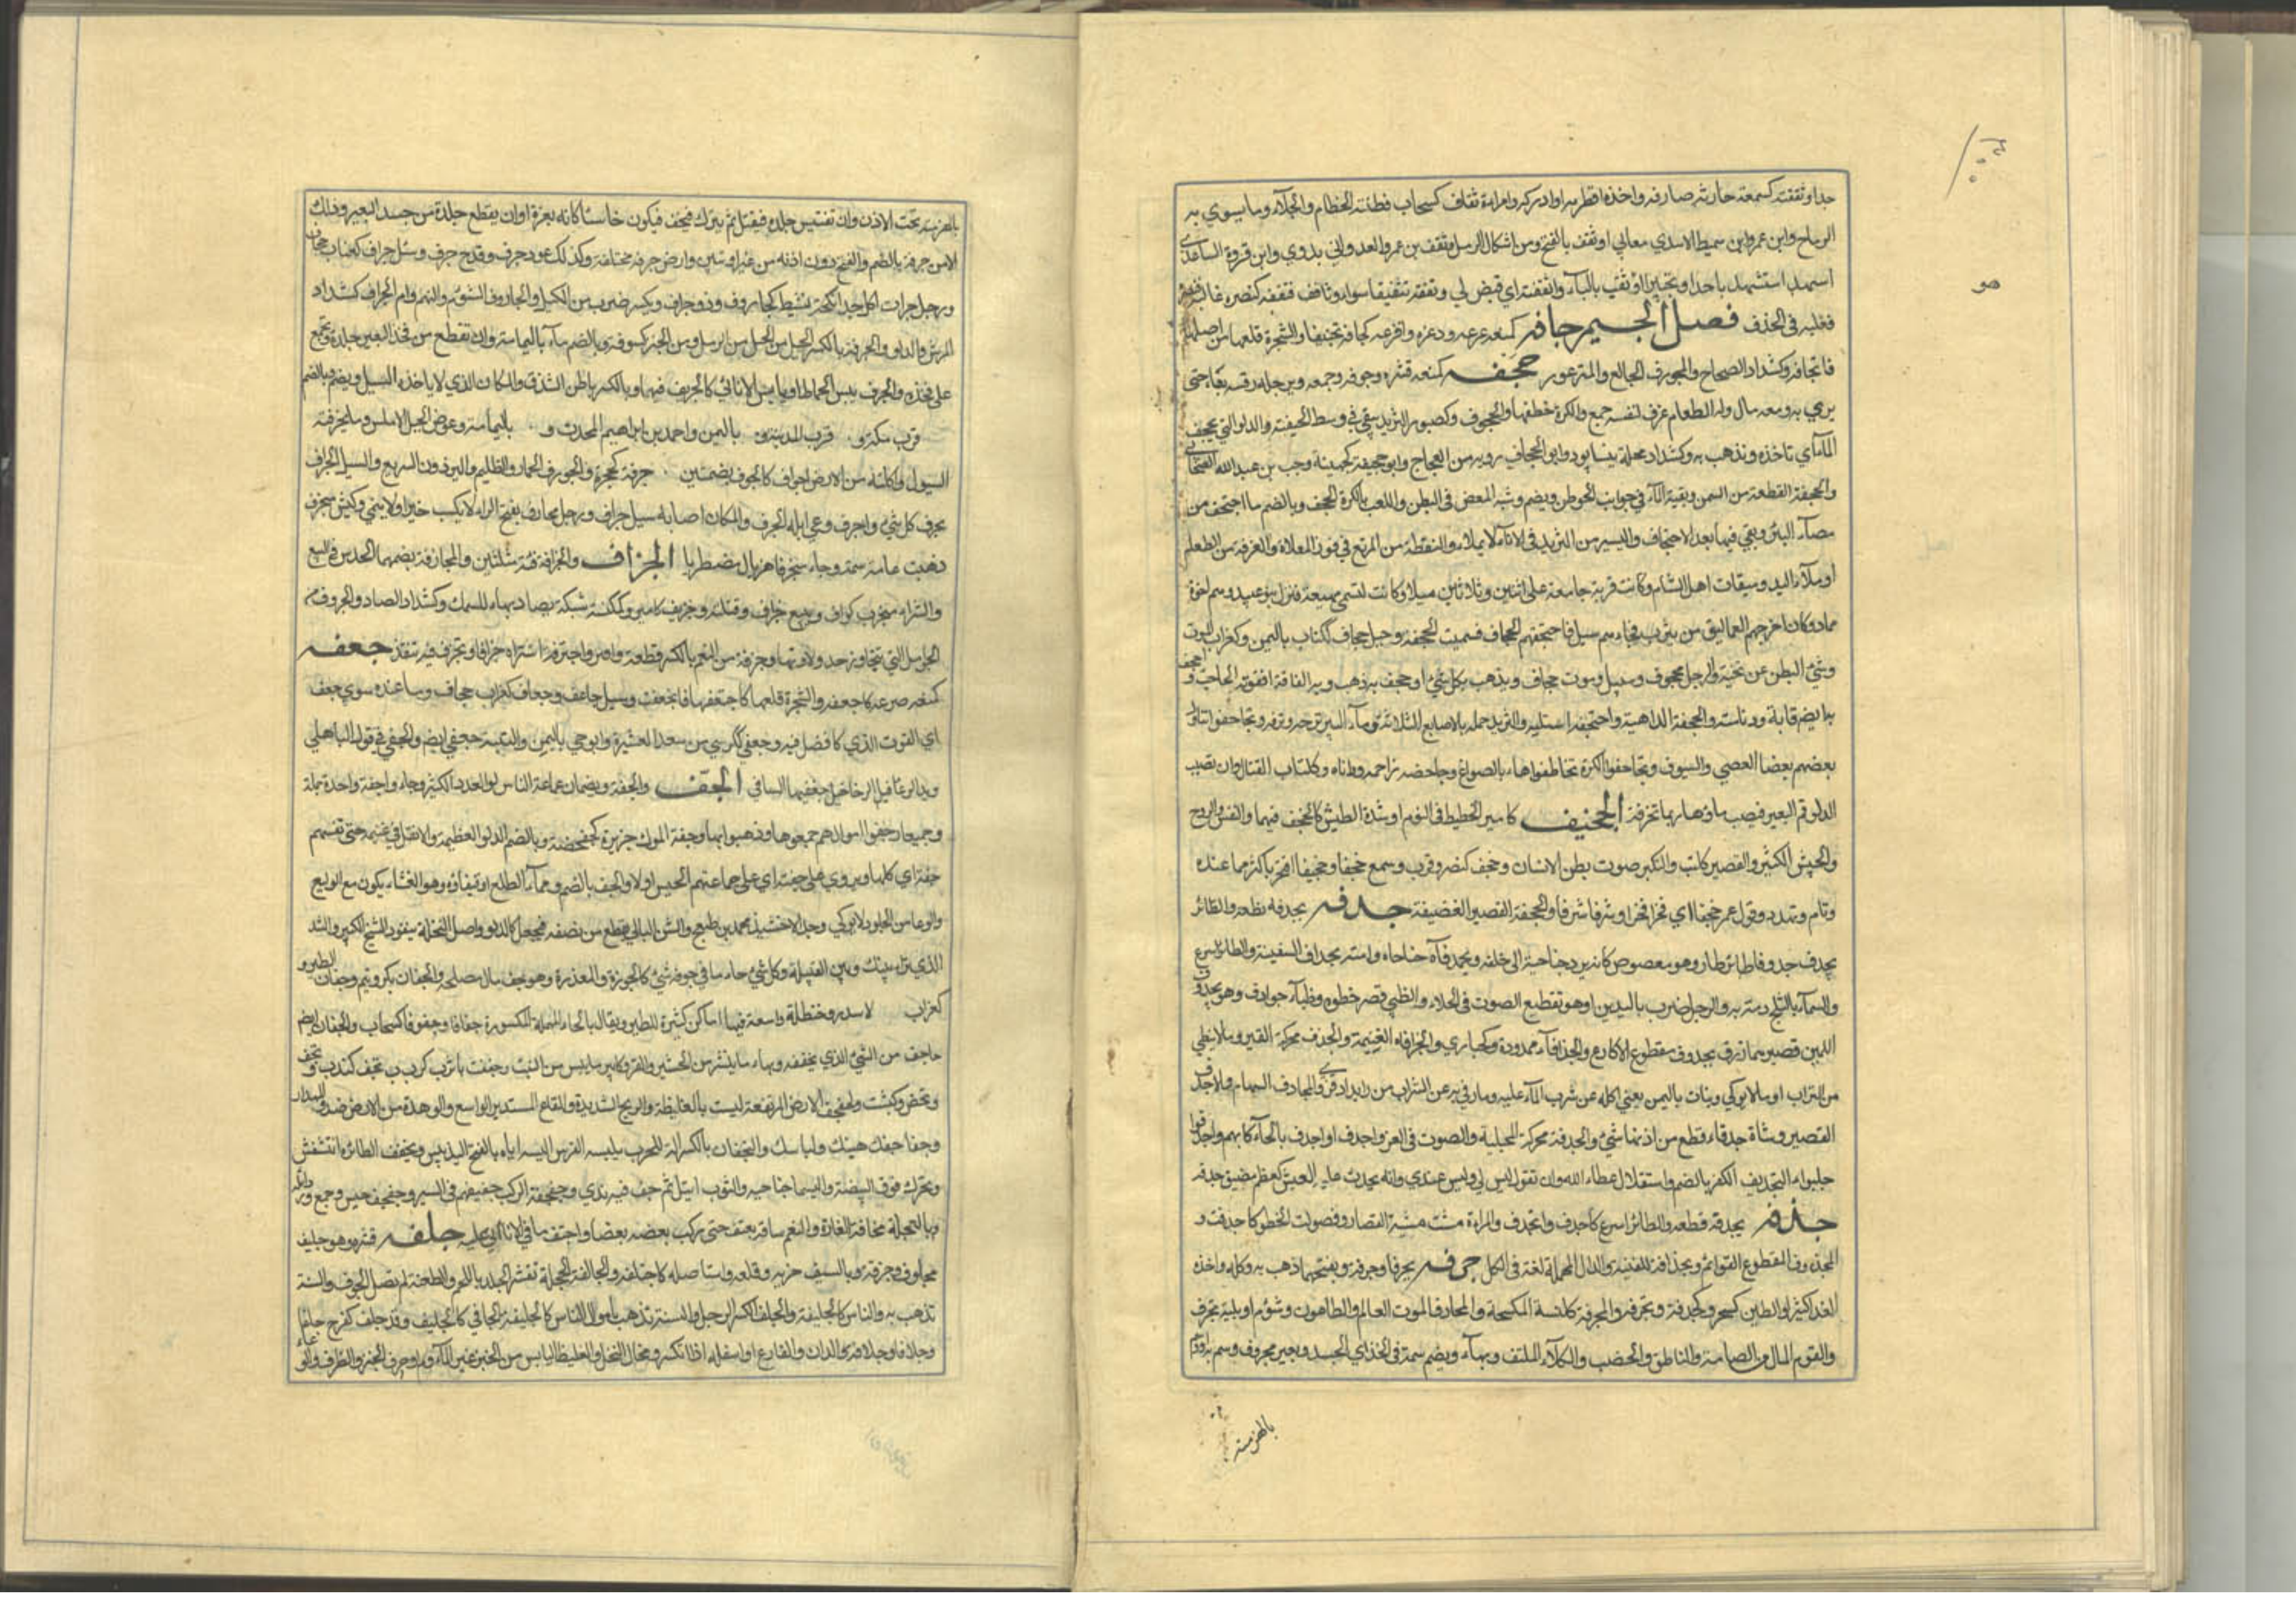 جدا وثقفته كسمعه صادفه واخذه او ظفر به او ادركه وامراة ثقاف كسحاب فطنة الخصام والجلاد وما يسوي به
الرماح وابن عمرو ابن سميط الاسدي او ثقف بالفتح ومن اشكال الرمل وثقف بن عمرو العدواني بدوي وابن فروة الساعدي
استشهد باحد او بخيبر او ثقب بالباء واثقفته اي قيض لي وثقفه تثقيفا سواه وثاقفه فثقفه كنصره غالبه
فغلبه في الحذف فصل الجيم جافه كمنعه صرعه وذعره وافزعه كجافه تجئيفا والشجرة قلعها من اصلها
فانجافت وكشداد الصياح والمجؤوف الجائع والمذعور جحفه كمنعه قشره وجرفه وجمعه وبرجله رفسه بها حتى
يرمي به ومعه مال وله الطعام غرف لنفسه جمع والكرة خطفها والجحوف كصبور الثريد يبقى في وسط الجفنة والدلو التي تجحف
الماء اي تاخذه وتذهب به وكشداد محلة بنيسابور وابو الجحاف روبة بن العجاج وابو جحيفة كجهينة وهب بن عبد الله الصحابي
والجحفة القطعة من السمن وبقية الماء في جوانب الحوض ويضم وشبه المغص في البطن واللعب بالكرة كالجحف وبالضم ما اجتحف من
ماء البئر وبقي فيها بعد الاجتحاف واليسير من الثريد في الاناء لا يملاه والنقطة من المرتع في قوز الفلاة والغرفة من الطعام
او ملء اليد وميقات اهل الشام وكانت قرية جامعة على اثنين وثلاثين ميلا وكانت تسمى مهيعة فنزل بنو عبيد وهم اخوة
عاد وكان اخرجهم العماليق من يثرب فجاءهم سيل فاجتحفهم الجحاف فسميت الجحفة وجبل جحاف ككتاب باليمن وكغراب الموت
ومشي البطن عن تخمة والرجل مجحوف وسيل وموت جحاف ويذهب بكل شيء واجحف به ذهب وبه الفاقة افقرته الحاجة
به ايضا قاربه ودنا منه والمجحفة الداهية واجتحفه استلبه والثريد حمله بالاصابع الثلاث وماء البئر نزحه ونزفه وتجاحفوا تناول
بعضهم بعضا بالعصي والسيوف وتجاحفوا الكرة تخاطفوها بالصوالج وجاحفه زاحمه وداناه وككتاب القتال وان تصيب
الدلو فم البئر فيصب ماؤها وربما تخرقت الجخيف كامير الغطيط في النوم او شدة الطيش كالجخف فيهما والنفس والروح
والجيش الكثير والقصير والتكبر وصوت بطن الانسان وجخف كنصر وضرب وسمع جخفا وجخيفا افتخر باكثر مما عنده
ونام وتهدد وقول عمر جخفا اي فخرا فخرا وشرفا شرفا والجخفة القصير القضيفة جدفه يجدفه قطعه والطائر
يجدف جدوفا طار وهو مقصوص كانه يرد جناحيه الى خلفه ومجدافاه جناحاه ومنه مجداف السفينة والطائر اسرع
والسماء بالثلج رمت به والرجل ضرب باليدين او هو تقطيع الصوت في الحداء والظبي قصر خطوه وظباء جوادف وهو مجدوف
اليدين قصيرهما وزق مجدوف مقطوع الاكارع والجدافاء ممدودة وكحبارى والجدافاه الغنيمة والجدف محركة القبر وما لا يغطى
من الشراب او ما لا يوكى ونبات باليمن يغني اكله عن شرب الماء عليه وما رمي به عن الشراب من زبد او قذى والمجادف السهام والاجدف
القصير وشاة جدفاء قطع من اذنها شيء والجدفة محركة الجلبة والصوت في العدو واجدف او اجدف بالحاء كاسهم واجدفوا
جلبوا والتجديف الكفر بالنعم واستقلال عطاء الله وان تقول ليس لي وليس عندي وانه لمجدف عليه العيش كمعظم مضيق
جذفه يجذفه قطعه والطائر اسرع كاجذف وانجذف والمراة مشت مشية القصار وقصرت الخطو كاجذفت و
المجذوف المقطوع القوائم ومجذاف السفينة والدال المهملة لغة في الكل جرفه يجرفه جرفا وجرفة ويفتحهما ذهب به كله واخذه
اخذا كثيرا والطين كسحه كجرفه وتجرفه والمجرفة كمكنسة المكسحة والجارف الموت العام والطاعون وشؤم او بلية تجترف
القوم والمال من الصامت والناطق والخصب والكلا الملتف وبهاء ويضم سمة في الفخذ او الجسد وبعير مجروف وسم به
بالهزمة
بالهزمة تحت الاذن وان تقتشر جلده فيفتل ثم يترك فيجف فيكون جاسيا كانه بعرة او ان يقطع جلدة من جسد البعير وذلك
الاثر جرفة بالضم والفتح دون انفه من غير ان تبين وارض جرفة مختلفة وكذلك عود جرف وقدح جرف وسيل جراف كغراب جحاف
ورجل جراف اكول جدا نكحة نشيط كجاروف وذو جراف ويكسر ضرب من الكيل والجاروف المشؤم والنهم وام الجراف كشداد
الترس والدلو والجرفة بالكسر الحبل من الرمل ومن الخبز كسرته وبالضم ماء باليمامة وان تقطع من فخذ البعير جلدة وتجمع
على فخذه والجرف يبيس الحماط او يابس الافاني كالجريف فيهما وبالكسر باطن الشدق والمكان الذي لا ياخذه السيل ويضم وبالضم
قرب مكة و قرب المدينة و باليمن واحمد بن ابراهيم المحدث و باليمامة وعرض الجبل الاملس وما تجرفته
السيول واكلته من الارض اجراف كالجرف بضمتين جرفة كجحرة والجورف الحمار والظليم والبرذون السريع والسيل الجراف
يجرف كل شيء واجرف رعى ابله الجرف والمكان اصابه سيل جراف ورجل مجارف بفتح الراء لا يكسب خيرا ولا ينمي وكبش متجرف
ذهبت عامة سمنه وجاء متجرفا هزيلا مضطربا الجزاف والجزافة مثلثتين والمجازفة بضمهما الحدس في البيع
والشراء معرب كزاف وبيع جزاف مثلثة وجزيف كامير وكمكنسة شبكة يصاد بها السمك وكشداد الصياد والجزوف
الحامل التي تتجاوز حد ولادتها وجزفة من النعم بالكسر قطعة واجتزفه اشتراه جزافا وتجزف فيه تنفذ جعفه
كمنعه صرعه كاجعفه والشجرة قلعها كاجتعفها فانجعفت وسيل جاعف وجعاف كغراب جحاف وما عنده سوى جعف
اي القوت الذي لا فضل فيه وجعفي ككرسي بن سعد العشيرة وابو حي باليمن والنسبة جعفي ايضا والجعفي في قول الباهلي
وبذ الرخاخيل جعفيها الساقي الجف والجفة ويضمان جماعة الناس او العدد الكثير وجاءوا جفة واحدة جملة
وجميعا وجفوا اموالهم جمعوها وذهبوا بها وجفة الموكب هزيزه كجفجفته وبالضم الدلو العظيمة ولا نفل في غنيمة حتى تقسم
جفة اي كلها ويروى على جفته اي على جماعتهم الجيش اولا والجف بالضم وعاء الطلع او قيقاؤه وهو الغشاء يكون مع الوليع
والوعاء من الجلود لا يوكى وجد الاخشيذ محمد بن طغج والشن البالي يقطع من نصفه فيجعل كالدلو واصل النخلة ينقر والشيخ الكبير والسد
الذي تراه بينك وبين القبلة وكل شيء خاو ما في جوفه شيء كالجوزة والمغدة وهو جف مال مصلحه والجفان بكر وتميم وجفاف الطير
كغراب لاسد وحنظلة واسعة فيها اماكن كثيرة للطير ويقال بالحاء المهملة المكسورة جفافا وجفوفا كسحاب والجفاف ايضا
ما جف من الشيء الذي تجففه وبهاء ما ينتثر من الحشيش والقت وكامير ما يبس من النبت وجففت يا ثوب كدب تجف كتدب وتجف
وتجض وكبششت والجفجف الارض المرتفعة ليست بالغليظة والريح الشديدة والقاع المستدير الواسع والوهدة من الارض ضد
وجفاجفك هيئتك ولباسك والتجفاف بالكسر الة للحرب يلبسه الفرس البسه اياه وبالفتح اليبيس وتجفجف الطائر انتفش
وتحرك فوق البيضة والبسها جناحيه والثوب ابتل ثم جف فيه ندى وجفجفة الموكب حفيفهم في السير وجفجف حبس وجمع ورد ابله
بالعجلة مخافة الغارة والنعم ساقه بعنف حتى ركب بعضه بعضا واجتف ما في الاناء اتى عليه جلفه قشره وهو جليف
مجلوف وجرفه وبالسيف ضربه وقلعه واستاصله كاجتلفه والجالفة الشجة تقشر الجلد باللحم والطعنة لم تصل الجوف والسنة
تذهب بالاموال كالجليفة والجلف بالكسر الرجل الجافي كالجليف وقد جلف كفرح جلفا
وجلافة والدن والفارغ او اسفله اذا انكسر وفحال النخل والغليظ اليابس من الخبز وغير المادوم او حرف الخبز والظرف والوعاء